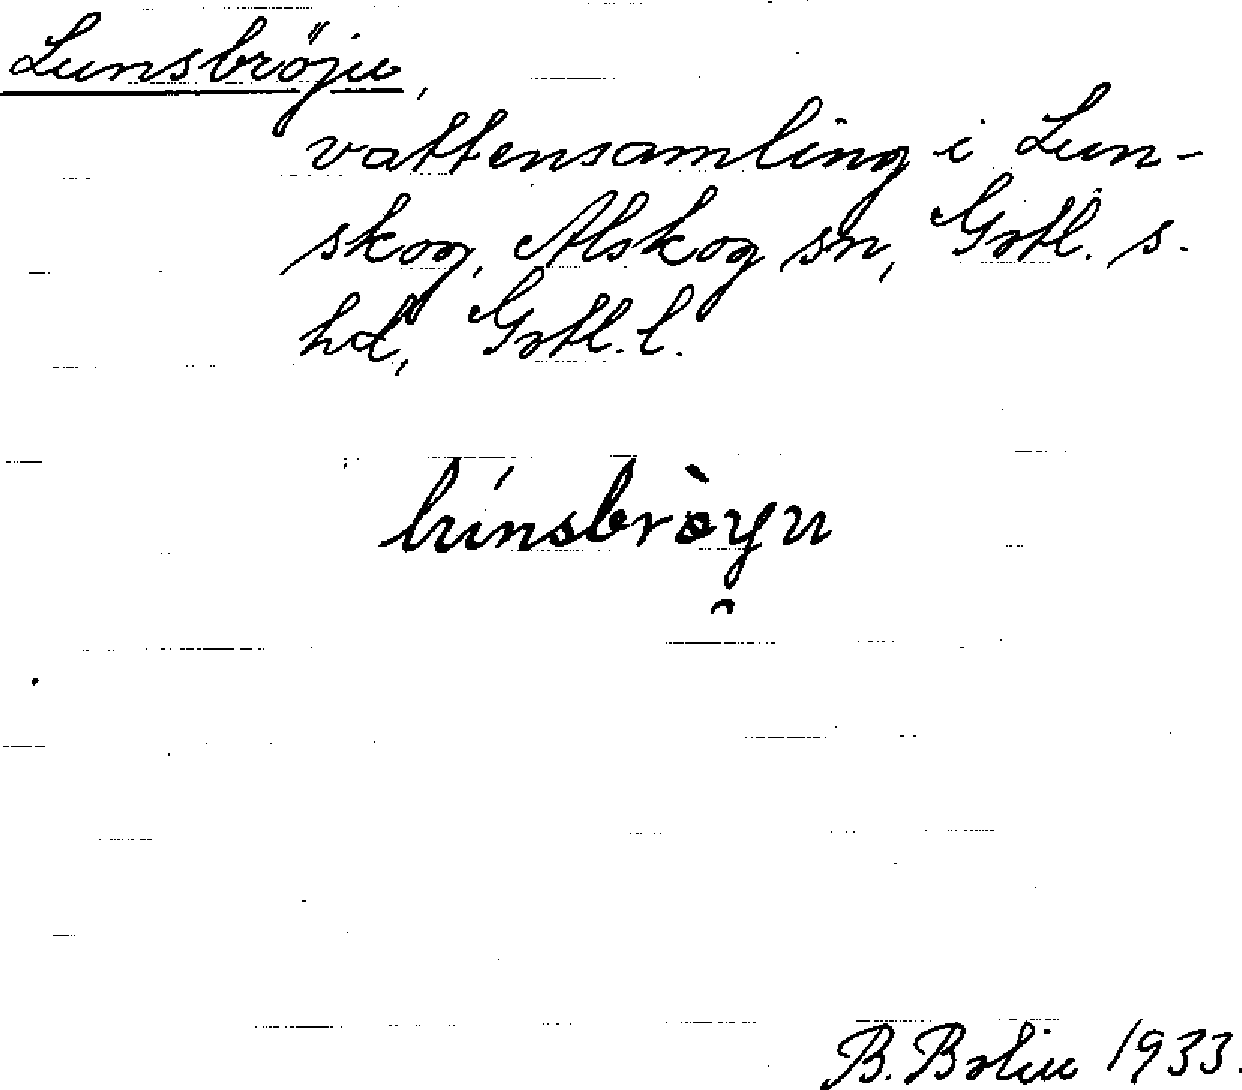 Lunsbröju,
vattensamling i Lun-
skog, Alskog sn, Gotl. s.
hd, Gotl. l.
lúnsbròyu
B. Bolin 1933.